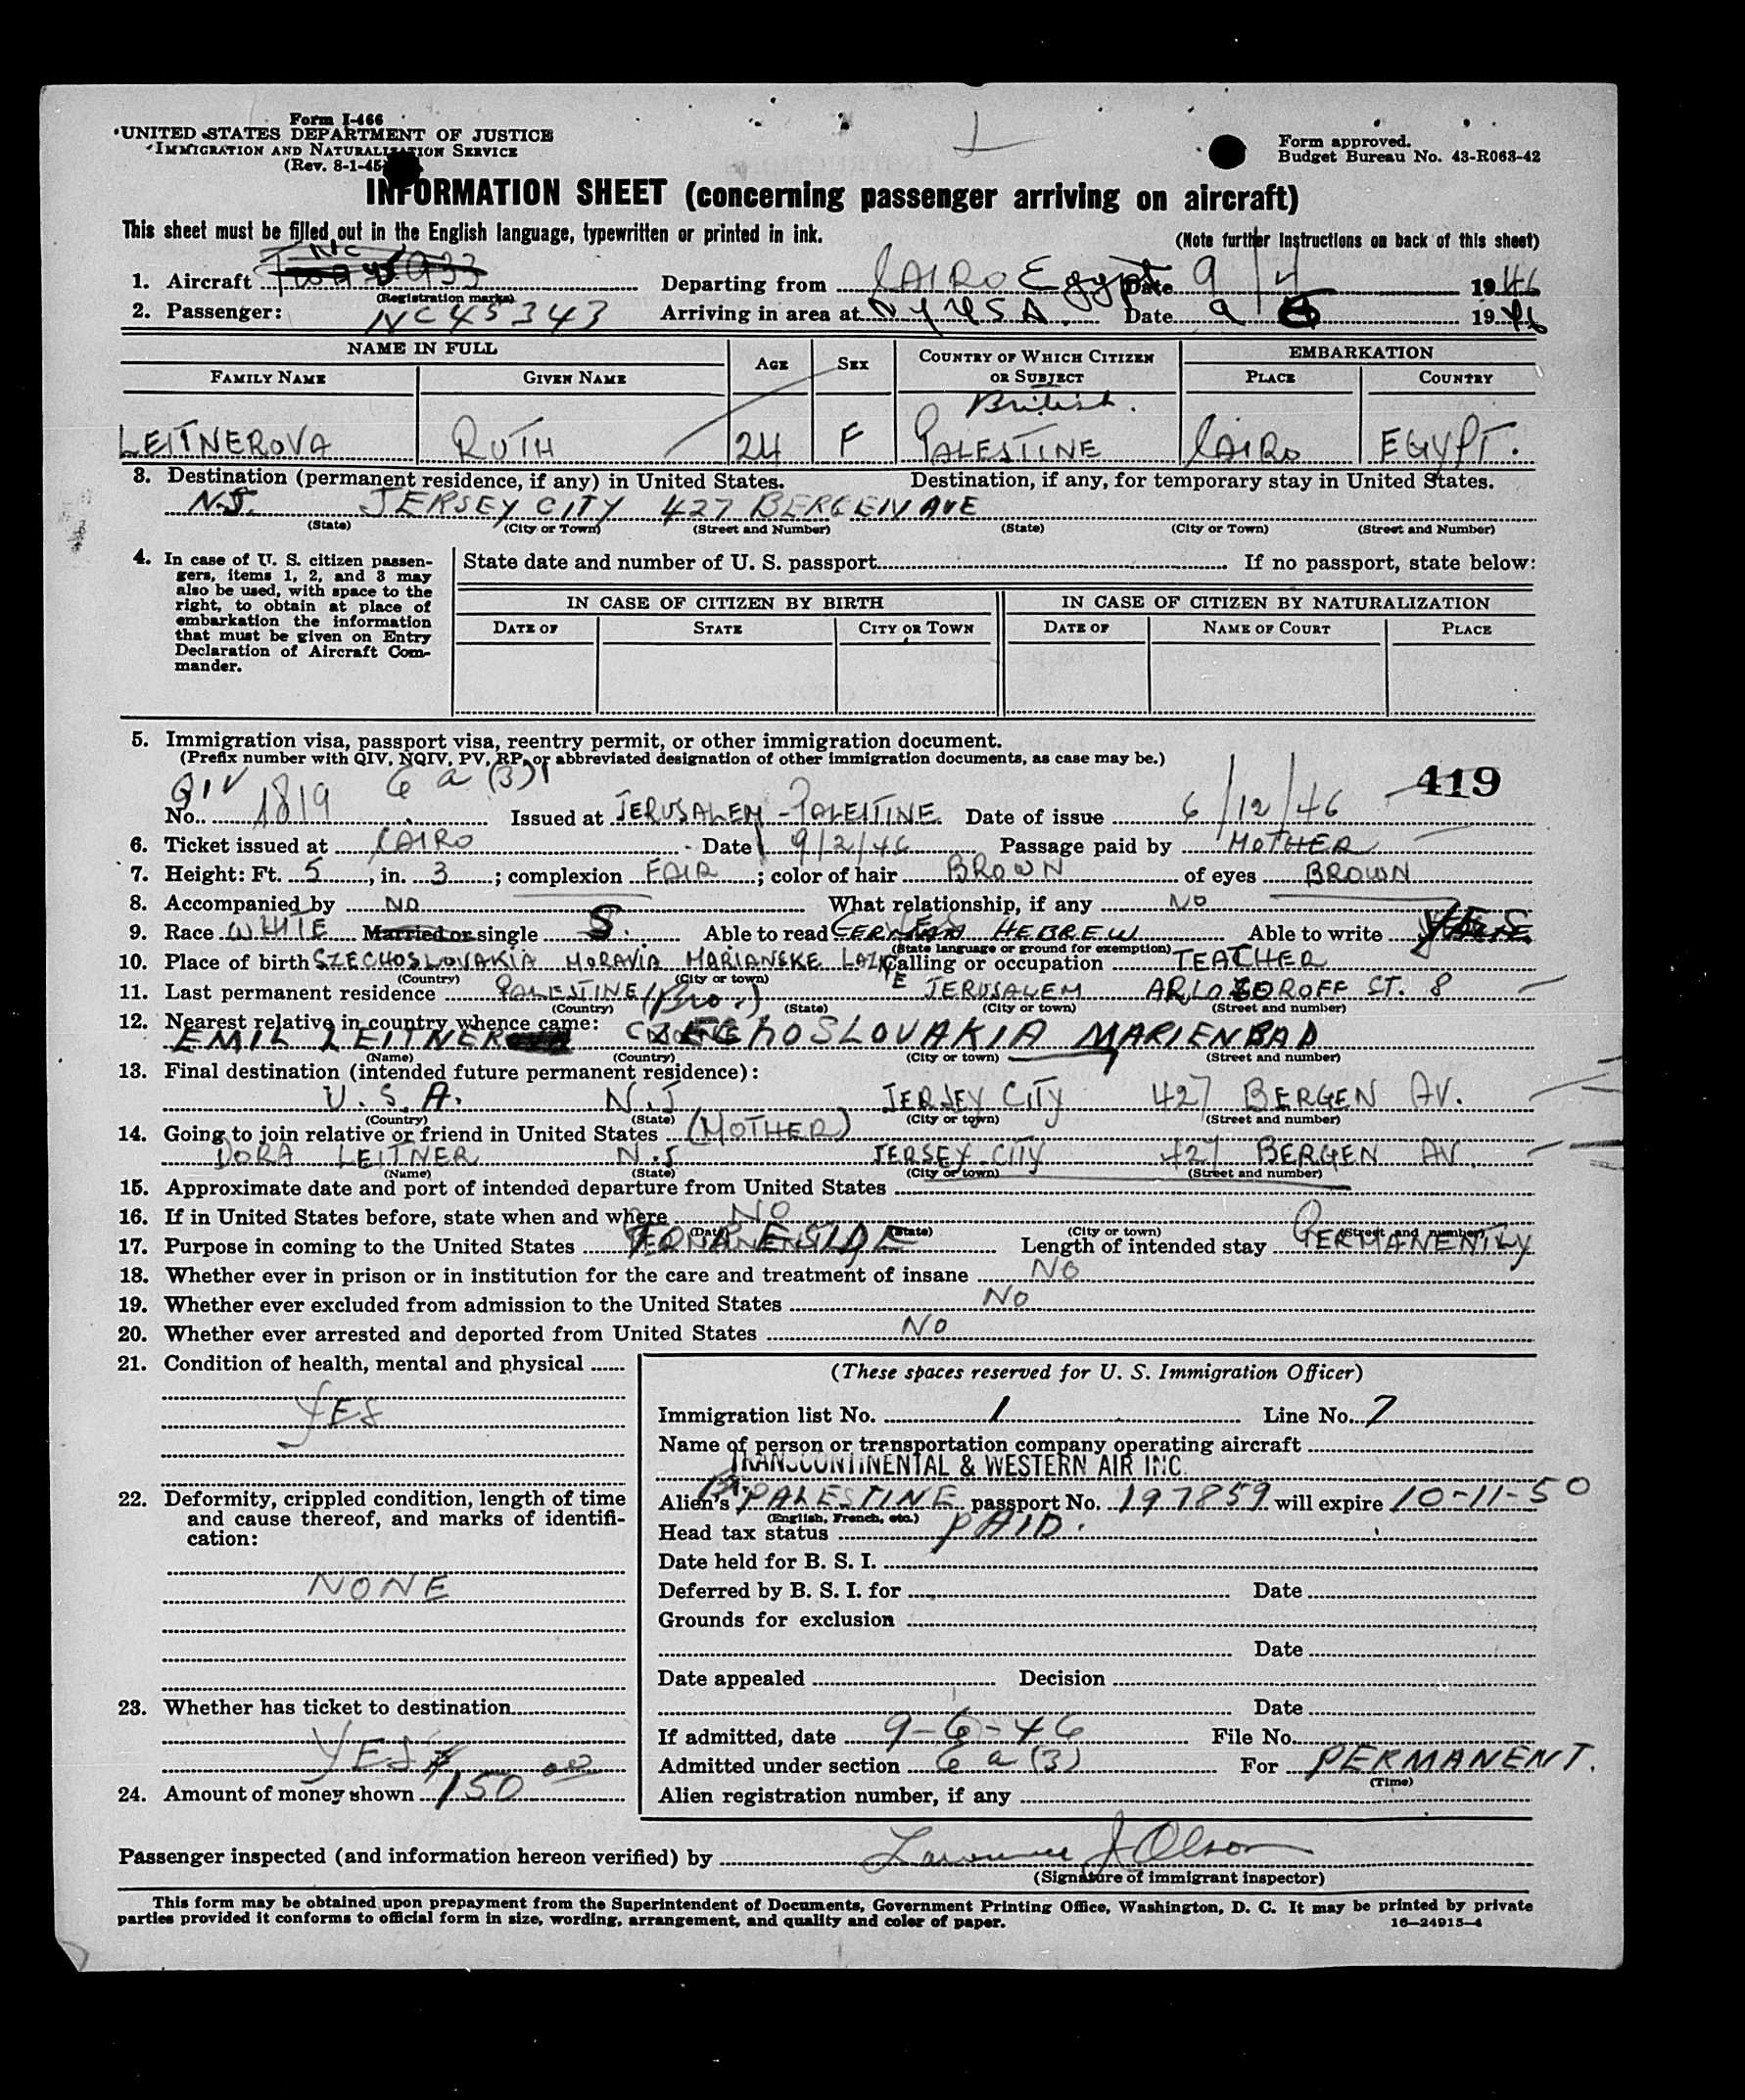 Form I-466
UNITED STATES DEPARTMENT OF JUSTICE
IMMIGRATION AND NATURALIZATION SERVICE
(Rev. 8-1-45)
Form approved.
Budget Bureau No. 43-R063-42
INFORMATION SHEET (concerning passenger arriving on aircraft)
This sheet must be filled out in the English language, typewritten or printed in ink.
(Note further instructions on back of this sheet)
NC
1. Aircraft 933 Departing from CAIRO Egypt Date 9/4 1946
(Registration marks)
2. Passenger: NC45343 Arriving in area at NY USA. Date 9 6 1946
NAME IN FULL AGE SEX COUNTRY OF WHICH CITIZEN OR SUBJECT EMBARKATION
FAMILY NAME GIVEN NAME PLACE COUNTRY
British.
LEITNEROVA RUTH 24 F PALESTINE CAIRO EGYPT.
3. Destination (permanent residence, if any) in United States. Destination, if any, for temporary stay in United States.
N.J. JERSEY CITY 427 BERGEN AVE
(State) (City or Town) (Street and Number) (State) (City or Town) (Street and Number)
4. In case of U. S. citizen passen-
gers, items 1, 2, and 3 may
also be used, with space to the
right, to obtain at place of
embarkation the information
that must be given on Entry
Declaration of Aircraft Com-
mander.
State date and number of U. S. passport If no passport, state below:
IN CASE OF CITIZEN BY BIRTH IN CASE OF CITIZEN BY NATURALIZATION
DATE OF STATE CITY OR TOWN DATE OF NAME OF COURT PLACE
5. Immigration visa, passport visa, reentry permit, or other immigration document.
(Prefix number with QIV, NQIV, PV, RP, or abbreviated designation of other immigration documents, as case may be.)
QIV 6 a (3) 419
No. 1819 Issued at JERUSALEM - PALESTINE Date of issue 6/12/46
6. Ticket issued at CAIRO Date 9/2/46 Passage paid by MOTHER
7. Height: Ft. 5, in. 3; complexion FAIR; color of hair BROWN of eyes BROWN
8. Accompanied by NO What relationship, if any NO
9. Race WHITE Married or single S. Able to read GERMAN HEBREW Able to write YES
(State language or ground for exemption)
10. Place of birth SZECHOSLOVAKIA MORAVIA MARIANSKE LAZNE Calling or occupation TEACHER
(Country) (City or town)
11. Last permanent residence PALESTINE (Bro.) JERUSALEM ARLOZOROFF ST. 8
(Country) (State) (City or town) (Street and number)
12. Nearest relative in country whence came:
EMIL LEITNER CZECHOSLOVAKIA MARIENBAD
(Name) (Country) (City or town) (Street and number)
13. Final destination (intended future permanent residence):
U.S.A. N.J JERSEY CITY 427 BERGEN AV.
(Country) (State) (City or town) (Street and number)
14. Going to join relative or friend in United States (MOTHER)
DORA LEITNER N.J JERSEY CITY 427 BERGEN AV.
(Name) (State) (City or town) (Street and number)
15. Approximate date and port of intended departure from United States
16. If in United States before, state when and where NO
(Date) (State) (City or town) (Street and number)
17. Purpose in coming to the United States TO RESIDE Length of intended stay PERMANENTLY
18. Whether ever in prison or in institution for the care and treatment of insane NO
19. Whether ever excluded from admission to the United States NO
20. Whether ever arrested and deported from United States NO
21. Condition of health, mental and physical
YES
22. Deformity, crippled condition, length of time
and cause thereof, and marks of identifi-
cation:
NONE
23. Whether has ticket to destination
YES
24. Amount of money shown $150.00
(These spaces reserved for U. S. Immigration Officer)
Immigration list No. 1 Line No. 7
Name of person or transportation company operating aircraft
TRANSCONTINENTAL & WESTERN AIR INC.
Alien's PALESTINE passport No. 197859 will expire 10-11-50
(English, French, etc.)
Head tax status PAID.
Date held for B. S. I.
Deferred by B. S. I. for Date
Grounds for exclusion
Date
Date appealed Decision
Date
If admitted, date 9-6-46 File No.
Admitted under section 6 a (3) For PERMANENT.
(Time)
Alien registration number, if any
Passenger inspected (and information hereon verified) by Lawrence J Olson
(Signature of immigrant inspector)
This form may be obtained upon prepayment from the Superintendent of Documents, Government Printing Office, Washington, D. C. It may be printed by private
parties provided it conforms to official form in size, wording, arrangement, and quality and color of paper.
16—24915-4